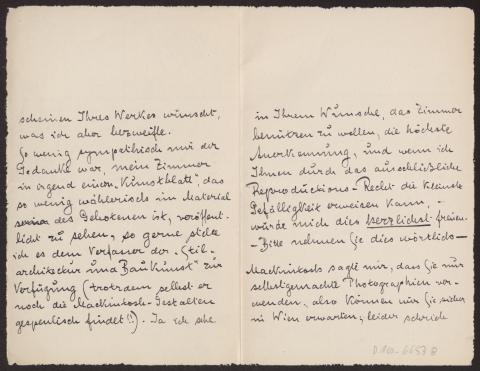 scheinen Ihres Werkes wünscht,
was ich aber bezweifle.
So wenig sympathisch mir der
Gedanke war, mein Zimmer
in irgend einem „Kunstblatt“, das
so wenig wählerisch im Material
des Gebotenen ist, veröffent-
licht zu sehen, so gerne stelle
ich es dem Verfasser der „Stil-
architektur und Baukunst“ zur
Verfügung (trotzdem selbst er
noch die Mackintosh-Gestalten
gespenstisch findet!!). Ja ich sehe
in Ihrem Wunsche, das Zimmer
benützen zu wollen, die höchste
Anerkennung, und wenn ich
Ihnen durch das ausschließliche
Reproductions-Recht die kleinste
Gefälligkeit erweisen kann, –
würde mich dies herzlichst freuen.
– Bitte nehmen Sie dies wörtlich –
Mackintosh sagte mir, dass Sie nur
selbstgemachte Photographien ver-
wenden, also können wir Sie sicher
in Wien erwarten; leider schrieb
D 102-6653 a